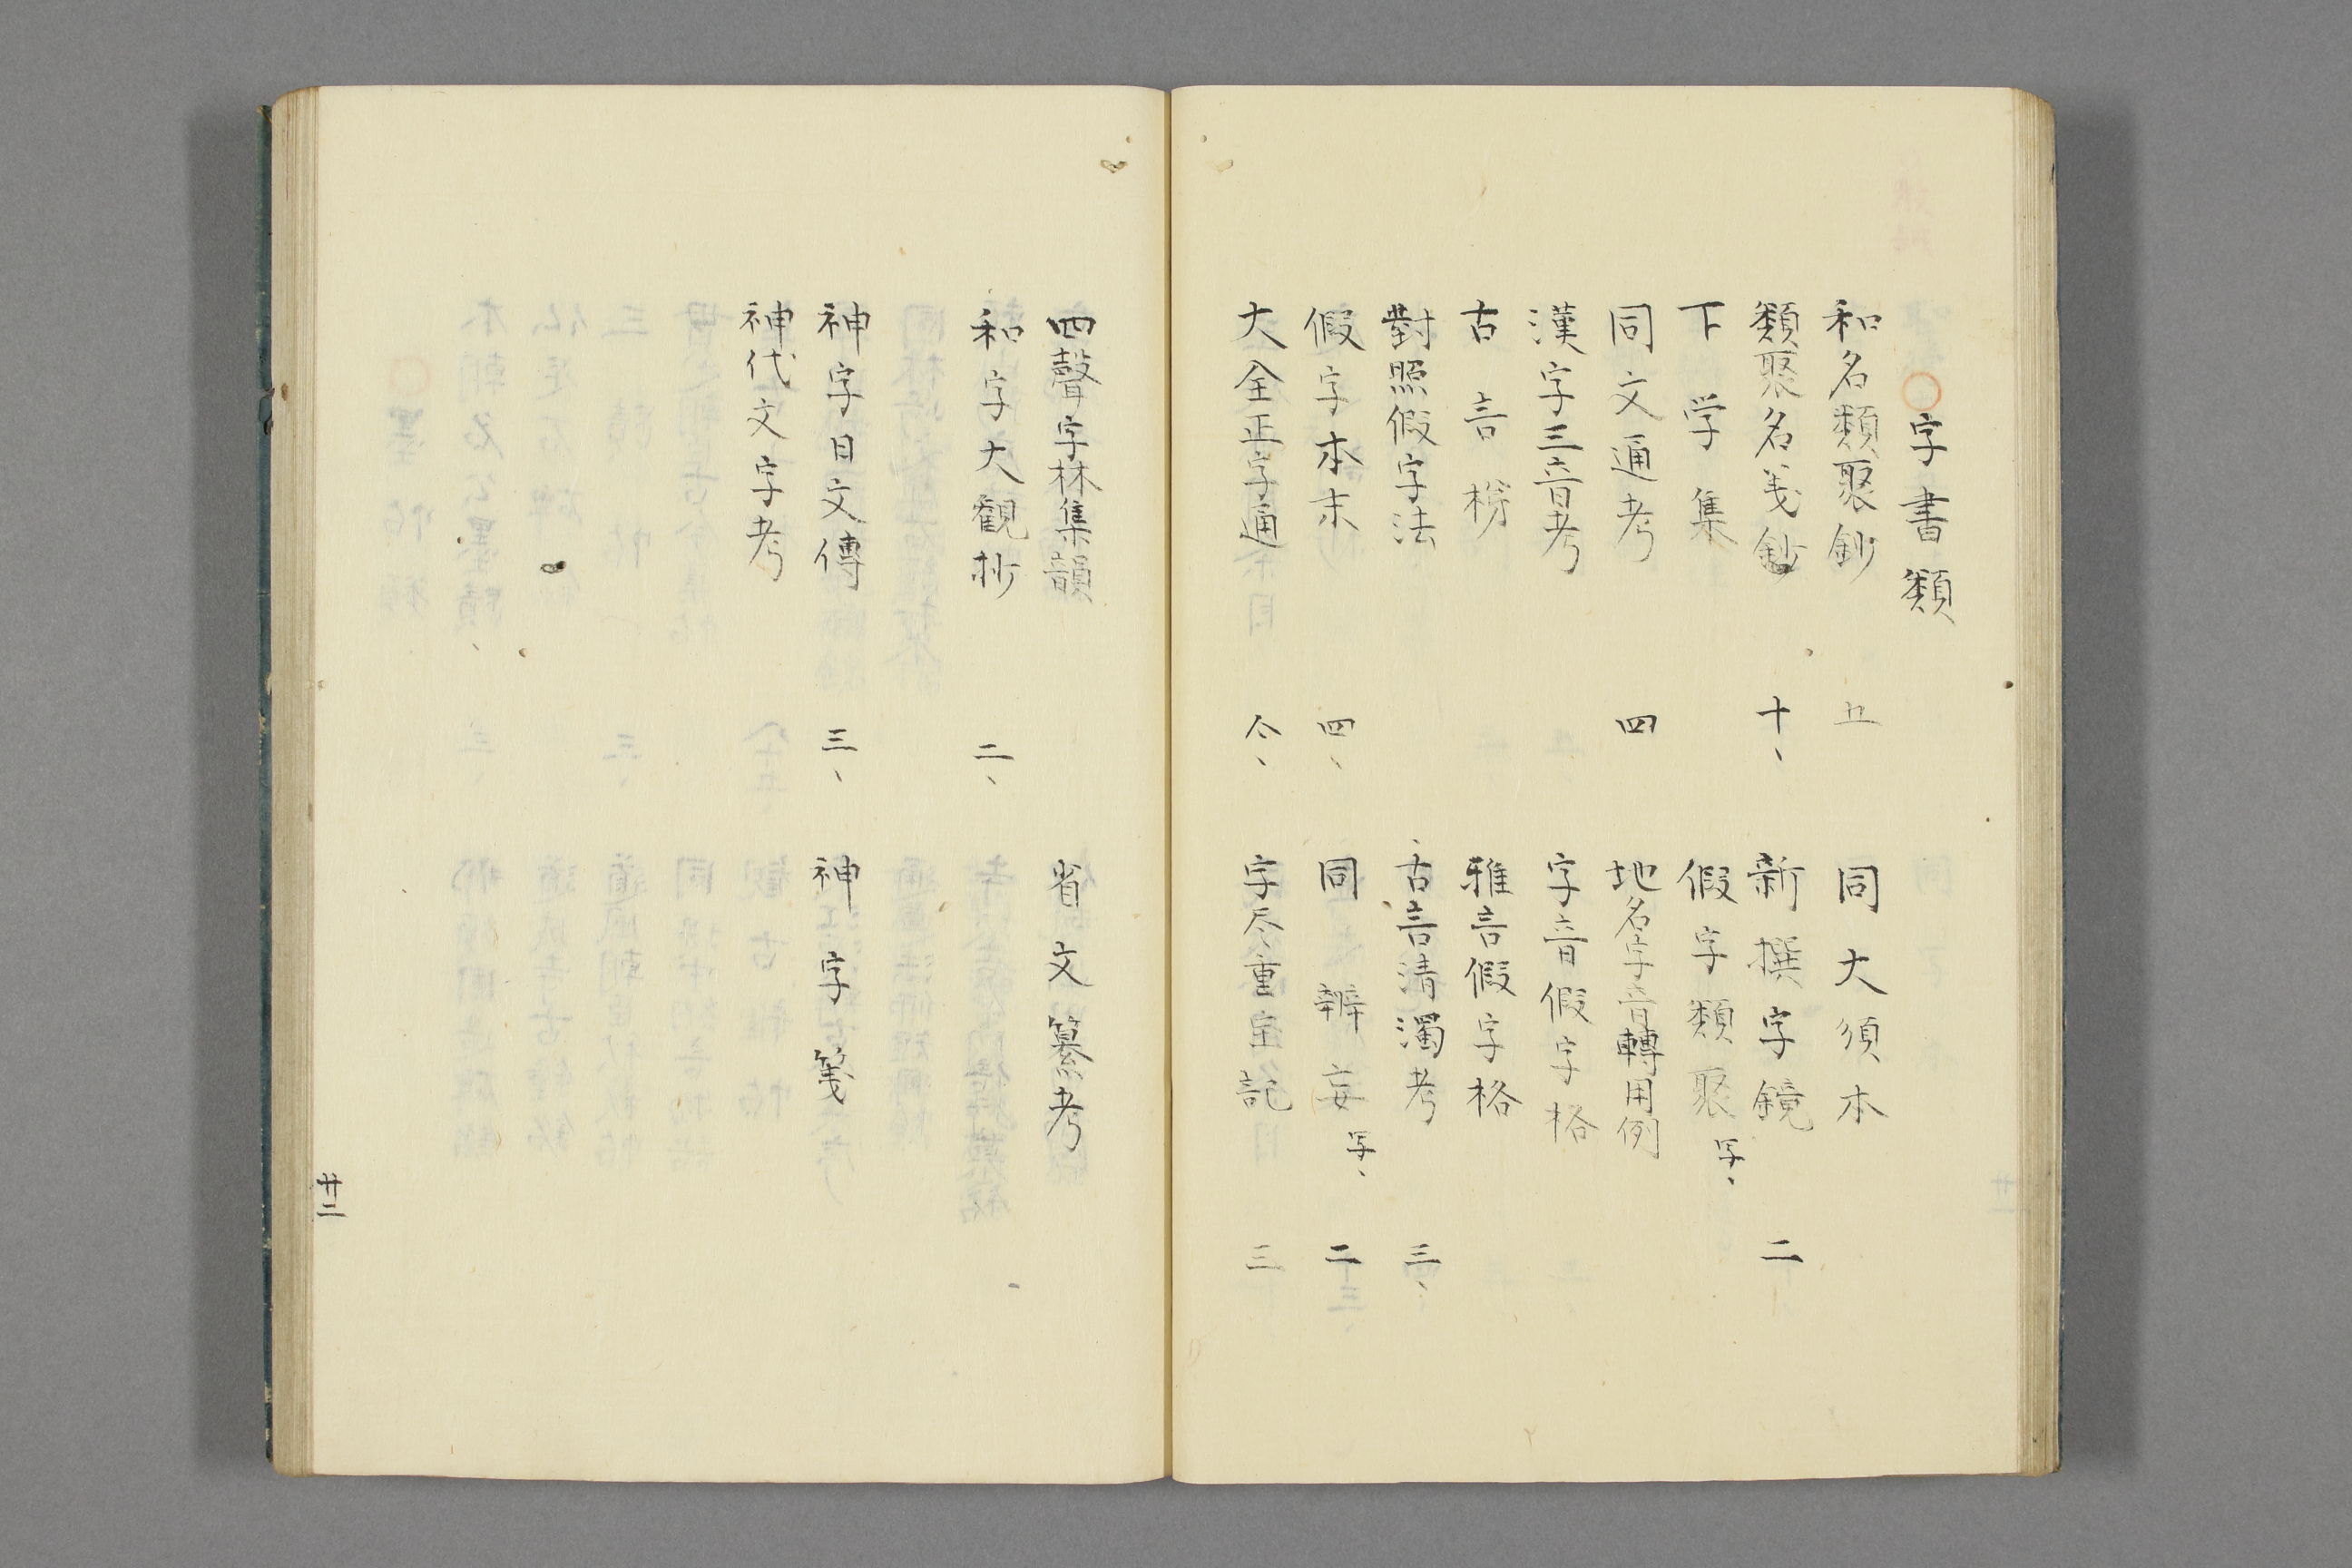 ○字書類
和名類聚鈔 五 同大須本
類聚名義鈔 十、 新撰字鏡 二
下学集 假字類聚 写、
同文通考 四 地名字音轉用例
漢字三音考 字音假字格
古言梯 雅言假字格
對照假字法 古言清濁考 三、
假字本末 四、 同辨妄 写、 二
大全正字通 仝、 字尽重宝記 三
四聲字林集韻 省文纂考
和字大観抄 二、
神字日文傳 三、 神字箋
神代文字考
廿二